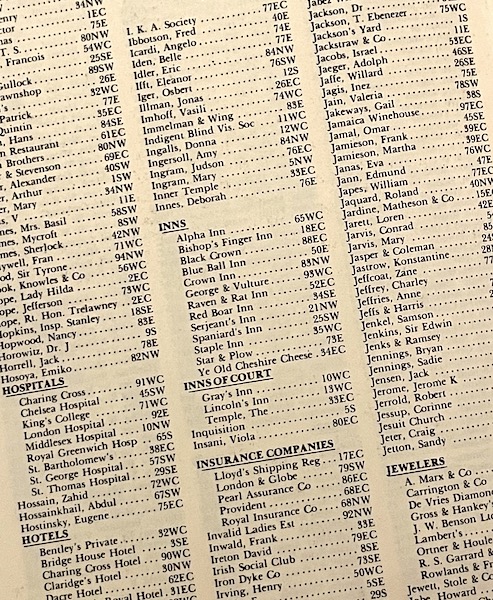 34NW
ctor 1EC
nas 75E
T. S. 80NW
Francois 54WC
25SE
Gullock 89SW
awnshop 26E
's 32WC
Patrick 77E
Quintin 35EC
, Hans 84SE
n Restaurant 61EC
n Brothers 80NW
& Stevenson 69EC
r, Alexander 40SW
r, Arthur 1SW
er, Mary 34NW
11E
mes, Mrs. Basil 58SW
mes, Mycroft 58SW
mes, Sherlock 42NW
nywell, Fran 71WC
od, Sir Tyrone 94NW
ook, Knowles & Co 56WC
ope, Lady Hilda 2EC
ope, Jefferson 73WC
ope, Rt. Hon. Trelawney 2EC
Hopkins, Insp. Stanley 18SE
Hopwood, Nancy 83E
Horowitz, Dr. J 9S
Horrell, Jack 78E
Hosoya, Emiko 82NW
HOSPITALS
Charing Cross 91WC
Chelsea Hospital 45SW
King's College 92E
London Hospital 71WC
Middlesex Hospital 92E
Royal Greenwich Hosp 10NW
St. Bartholomew's 65S
St. George Hospital 38EC
St. Thomas Hospital 57SW
Hossain, Zahid 29SE
Hossainkhail, Abdul 72WC
Hostinsky, Eugene 67SW
75EC
HOTELS
Bentley's Private 32WC
Bridge House Hotel 3SE
Charing Cross Hotel 90WC
Claridge's Hotel 30NW
Dacre Hotel 62EC
Royal Hotel 31EC
I. K. A. Society 77EC
Ibbotson, Fred 40E
Icardi, Angelo 74E
Iden, Belle 77E
Idler, Eric 84NW
Ifft, Eleanor 76SW
Iger, Osbert 12S
Illman, Jonas 26EC
Imhoff, Vasili 74WC
Immelman & Wing 83E
Indigent Blind Vis. Soc 11WC
Ingalls, Donna 12WC
Ingersoll, Amy 84NW
Ingram, Judson 76EC
Ingram, Mary 5NW
Inner Temple 33EC
Innes, Deborah 76E
INNS
Alpha Inn 65WC
Bishop's Finger Inn 18EC
Black Crown 88EC
Blue Ball Inn 50E
Crown Inn 83NW
George & Vulture 93WC
Raven & Rat Inn 52EC
Red Boar Inn 34SE
Serjeant's Inn 21NW
Spaniard's Inn 25SW
Staple Inn 35WC
Star & Plow 73E
Ye Old Cheshire Cheese 34EC
INNS OF COURT
Gray's Inn 10WC
Lincoln's Inn 13WC
Temple, The 33EC
Inquisition 5S
Insani, Viola 80EC
INSURANCE COMPANIES
Lloyd's Shipping Reg 17EC
London & Globe 79SW
Pearl Assurance Co 86EC
Provident 68EC
Royal Insurance Co 68NW
Invalid Ladies Est 92NW
Inwald, Frank 33E
Ireton David 79EC
Irish Social Club 8SE
Iron Dyke Co 73SE
Irving, Henry 50E
5SE
29S
Jackson, Dr
Jackson, T. Ebenezer 75WC
Jackson's Yard 1S
Jackstraw & Co 11E
Jacobs, Israel 53EC
Jaeger, Adolph 46SE
Jaffe, Willard 26SE
Jagis, Inez 75E
Jain, Valeria 78SW
Jakeways, Gail 38S
Jamaica Winehouse 97EC
Jamal, Omar 45SE
Jamieson, Frank 39EC
Jamieson, Martha 39EC
Janas, Eva 76WC
Jann, Edmund 47N
Japes, William 77EC
Jaquard, Roland 40N
Jardine, Matheson & Co 15E
Jarett, Loren 42E
Jarvis, Conrad
Jarvis, Mary
Jasper & Coleman
Jastrow, Konstantine
Jeffcoat, Zane
Jeffrey, Charley
Jeffries, Anne
Jeffs & Harris
Jenkel, Samson
Jenkins, Sir Edwin
Jenks & Ramsey
Jennings, Bryan
Jennings, Sadie
Jensen, Jack
Jerome, Jerome K
Jerrold, Robert
Jessup, Corinne
Jesuit Church
Jeter, Craig
Jetton, Sandy
JEWELERS
A. Marx & Co
Carrington & Co
De Vries Diamond
Gross & Hankey's
J. W. Benson Lt
Lambert's
Ortner & Houle
R. S. Garrard &
Rowlands & Fr
Jewett, Stole & C
Howard